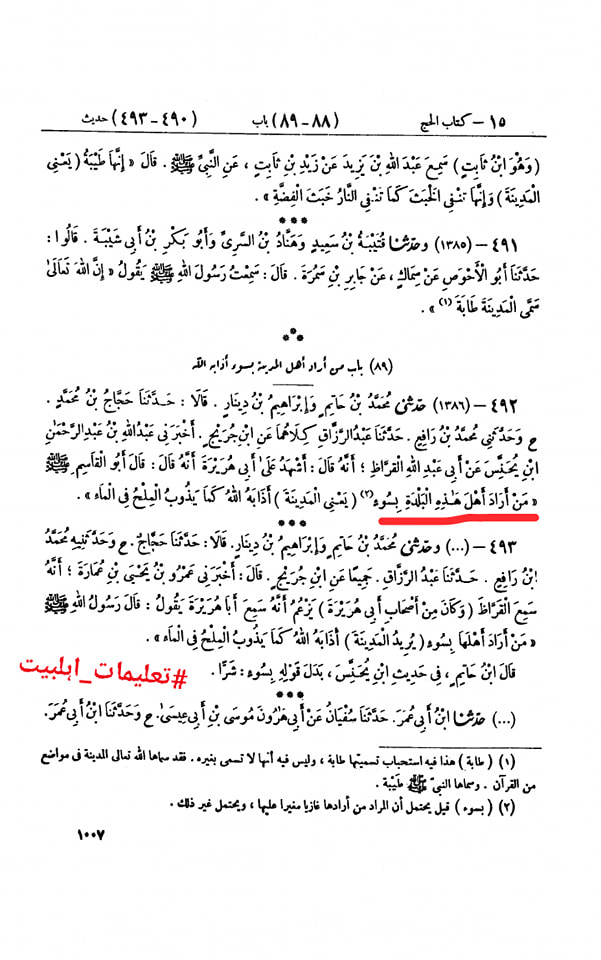 ١٥ – كتاب الحج (٨٨ – ٨٩) باب (٤٩٠ – ٤٩٣) حديث
(وَهُوَ ابْنُ ثَابِتٍ) سَمِعَ عَبْدَ اللهِ بْنَ يَزِيدَ عَنْ زَيْدِ بْنِ ثَابِتٍ ، عَنِ النَّبِيِّ ﷺ . قَالَ « إِنَّهَا طَيْبَةُ ( يَعْنِي
الْمَدِينَةَ ) وَإِنَّهَا تَنْفِي الْخَبَثَ كَمَا تَنْفِي النَّارُ خَبَثَ الْفِضَّةِ » .
***
٤٩١ – (١٣٨٥) وحدثنا قُتَيْبَةُ بْنُ سَعِيدٍ وَهَنَّادُ بْنُ السَّرِيِّ وَأَبُو بَكْرِ بْنُ أَبِي شَيْبَةَ . قَالُوا :
حَدَّثَنَا أَبُو الْأَحْوَصِ عَنْ سِمَاكٍ ، عَنْ جَابِرِ بْنِ سَمُرَةَ . قَالَ : سَمِعْتُ رَسُولَ اللهِ ﷺ يَقُولُ « إِنَّ اللهَ تَعَالَى
سَمَّى الْمَدِينَةَ طَابَةَ (١) » .
***
(٨٩) باب من أراد أهل المدينة بسوء أذابه الله
٤٩٢ – (١٣٨٦) حدثني مُحَمَّدُ بْنُ حَاتِمٍ وَإِبْرَاهِيمُ بْنُ دِينَارٍ . قَالَا : حَدَّثَنَا حَجَّاجُ بْنُ مُحَمَّدٍ .
ح وَحَدَّثَنِي مُحَمَّدُ بْنُ رَافِعٍ . حَدَّثَنَا عَبْدُ الرَّزَّاقِ كِلَاهُمَا عَنِ ابْنِ جُرَيْجٍ . أَخْبَرَنِي عَبْدُ اللهِ بْنُ عَبْدِ الرَّحْمٰنِ
ابْنِ يُحَنَّسَ عَنْ أَبِي عَبْدِ اللهِ الْقَرَّاظِ ؛ أَنَّهُ قَالَ : أَشْهَدُ عَلَى أَبِي هُرَيْرَةَ أَنَّهُ قَالَ : قَالَ أَبُو الْقَاسِمِ ﷺ
« مَنْ أَرَادَ أَهْلَ هَـٰذِهِ الْبَلْدَةِ بِسُوءٍ (٢) ( يَعْنِي الْمَدِينَةَ ) أَذَابَهُ اللهُ كَمَا يَذُوبُ الْمِلْحُ فِي الْمَاءِ » .
***
٤٩٣ – (...) وحدثني مُحَمَّدُ بْنُ حَاتِمٍ وَإِبْرَاهِيمُ بْنُ دِينَارٍ. قَالَا: حَدَّثَنَا حَجَّاجٌ. ح وَحَدَّثَنِيهِ مُحَمَّدُ
ابْنُ رَافِعٍ . حَدَّثَنَا عَبْدُ الرَّزَّاقِ. جَمِيعًا عَنِ ابْنِ جُرَيْجٍ . قَالَ : أَخْبَرَنِي عَمْرُو بْنُ يَحْيَىٰ بْنِ عُمَارَةَ ؛ أَنَّهُ
سَمِعَ الْقَرَّاظَ ( وَكَانَ مِنْ أَصْحَابِ أَبِي هُرَيْرَةَ ) يَزْعُمُ أَنَّهُ سَمِعَ أَبَا هُرَيْرَةَ يَقُولُ : قَالَ رَسُولُ اللهِ ﷺ
« مَنْ أَرَادَ أَهْلَهَا بِسُوءٍ ( يُرِيدُ الْمَدِينَةَ ) أَذَابَهُ اللهُ كَمَا يَذُوبُ الْمِلْحُ فِي الْمَاءِ » .
قَالَ ابْنُ حَاتِمٍ ، فِي حَدِيثِ ابْنِ يُحَنَّسَ ، بَدَلَ قَوْلِهِ بِسُوءٍ : شَرًّا .
#تعليمات_ابلبيت
***
(...) حدثنا ابْنُ أَبِي عُمَرَ. حَدَّثَنَا سُفْيَانُ عَنْ أَبِي هَارُونَ مُوسَى بْنِ أَبِي عِيسَىٰ. ح وَحَدَّثَنَا ابْنُ أَبِي عُمَرَ.
(١) ( طابة ) هذا فيه استحباب تسميتها طابة ، وليس فيه أنها لا تسمى بغيره . فقد سماها الله تعالى المدينة فى مواضع
من القرآن . وسماها النبىّ ﷺ طَيْبَة .
(٢) ( بسوء ) قيل يحتمل أن المراد من أرادها غازيا مغيرا عليها ، ويحتمل غير ذلك .
١٠٠٧